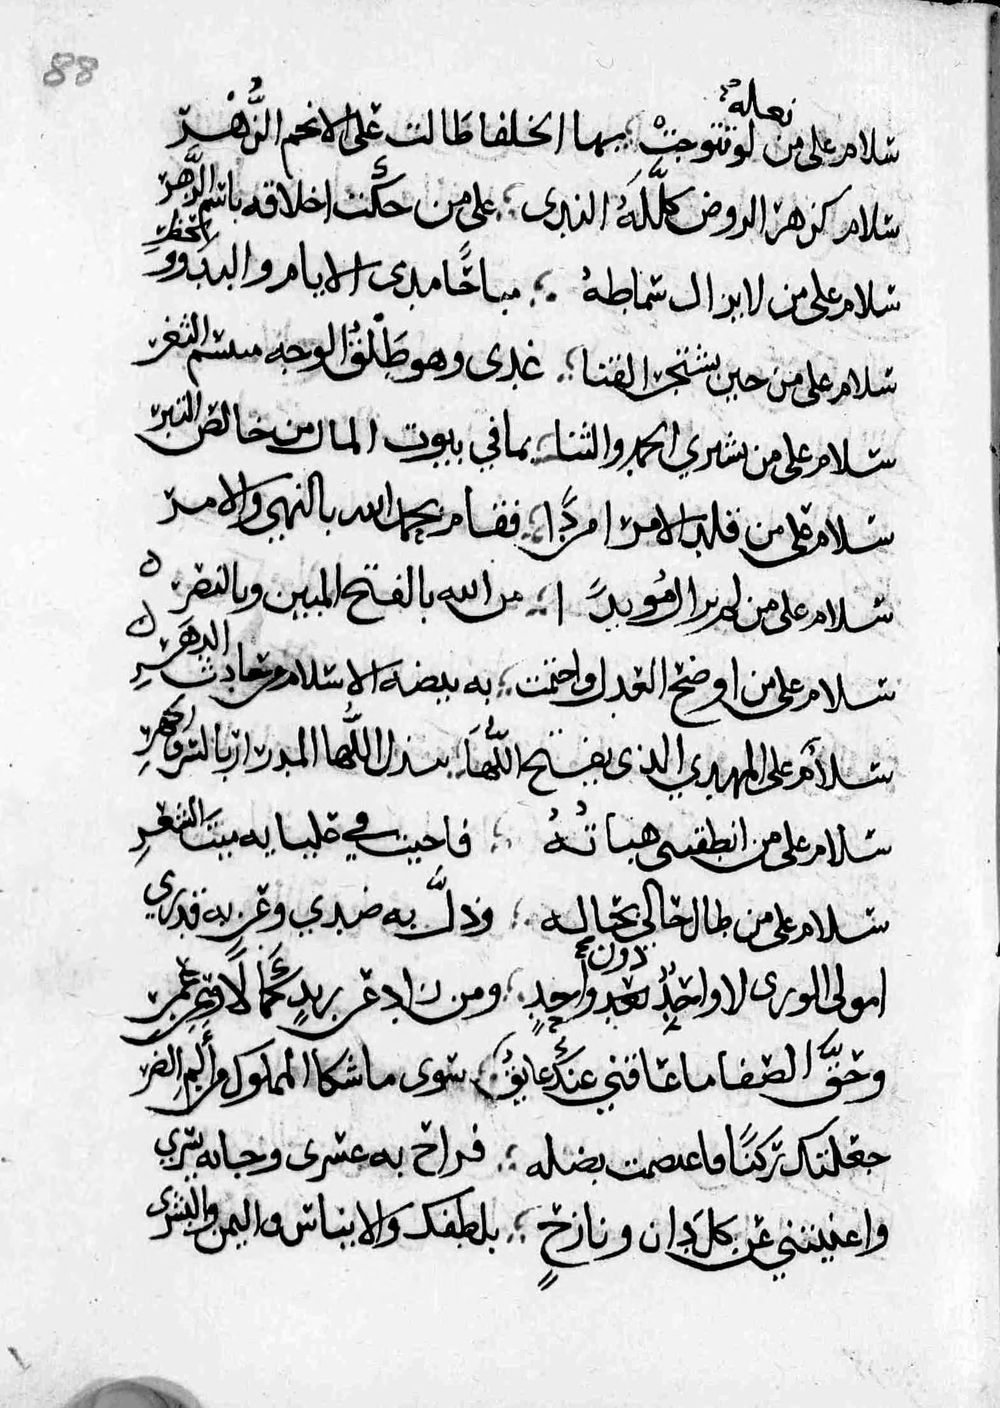 88
نعله
سلام على من لو تتوجت بها الخلفا طالت على الانجم الزُّهْر
سلام كزهر الروض كلَّلَهُ الندى على من حكت اخلاقه باسم الزَّهر
سلام على من لا يزال سماطه مباحًا مدى الايام والبدو والحضر
سلام على من حين يشتجر القنا غدى وهو طَلْقُ الوجه مبتسم الثغر
سلام على من يشتري الحمد والثنا بما في بيوت المال من خالص التبر
سلام على من قلد الامر امردًا فقام بحمد الله بالنهي والامر
سلام على من لم يزال مُويدًا من الله بالفتح المبين وبالنصر
سلام على من اوضح العدل واحتمت به بيضة الاسلام من حادث الدهر
سلام على المهدي الذي يفتح اللَّها ببذل اللُّها المدرار بالسر والجهر
سلام على من انطقتني هباتُهُ فاحيت في علياه ميت الشعر
سلام على من طال حالي بحاله وذلَّ به ضدي وعز به قدري
امولى الورى لا واحدٌ دون واحدٍ ومن زاد عن زيدٍ كمالًا وعن عمر
وحقِّ الصفا ما عاقني عنك عايقٌ سوى ما شكا المملوك من أليم الضر
جعلتك ركنًا فاعتصمت بفضله فراح به عسرى وجا به يسري
واغنيتني عن كل دان ونازحٍ بلطفك والايناس واليمن والبشرى